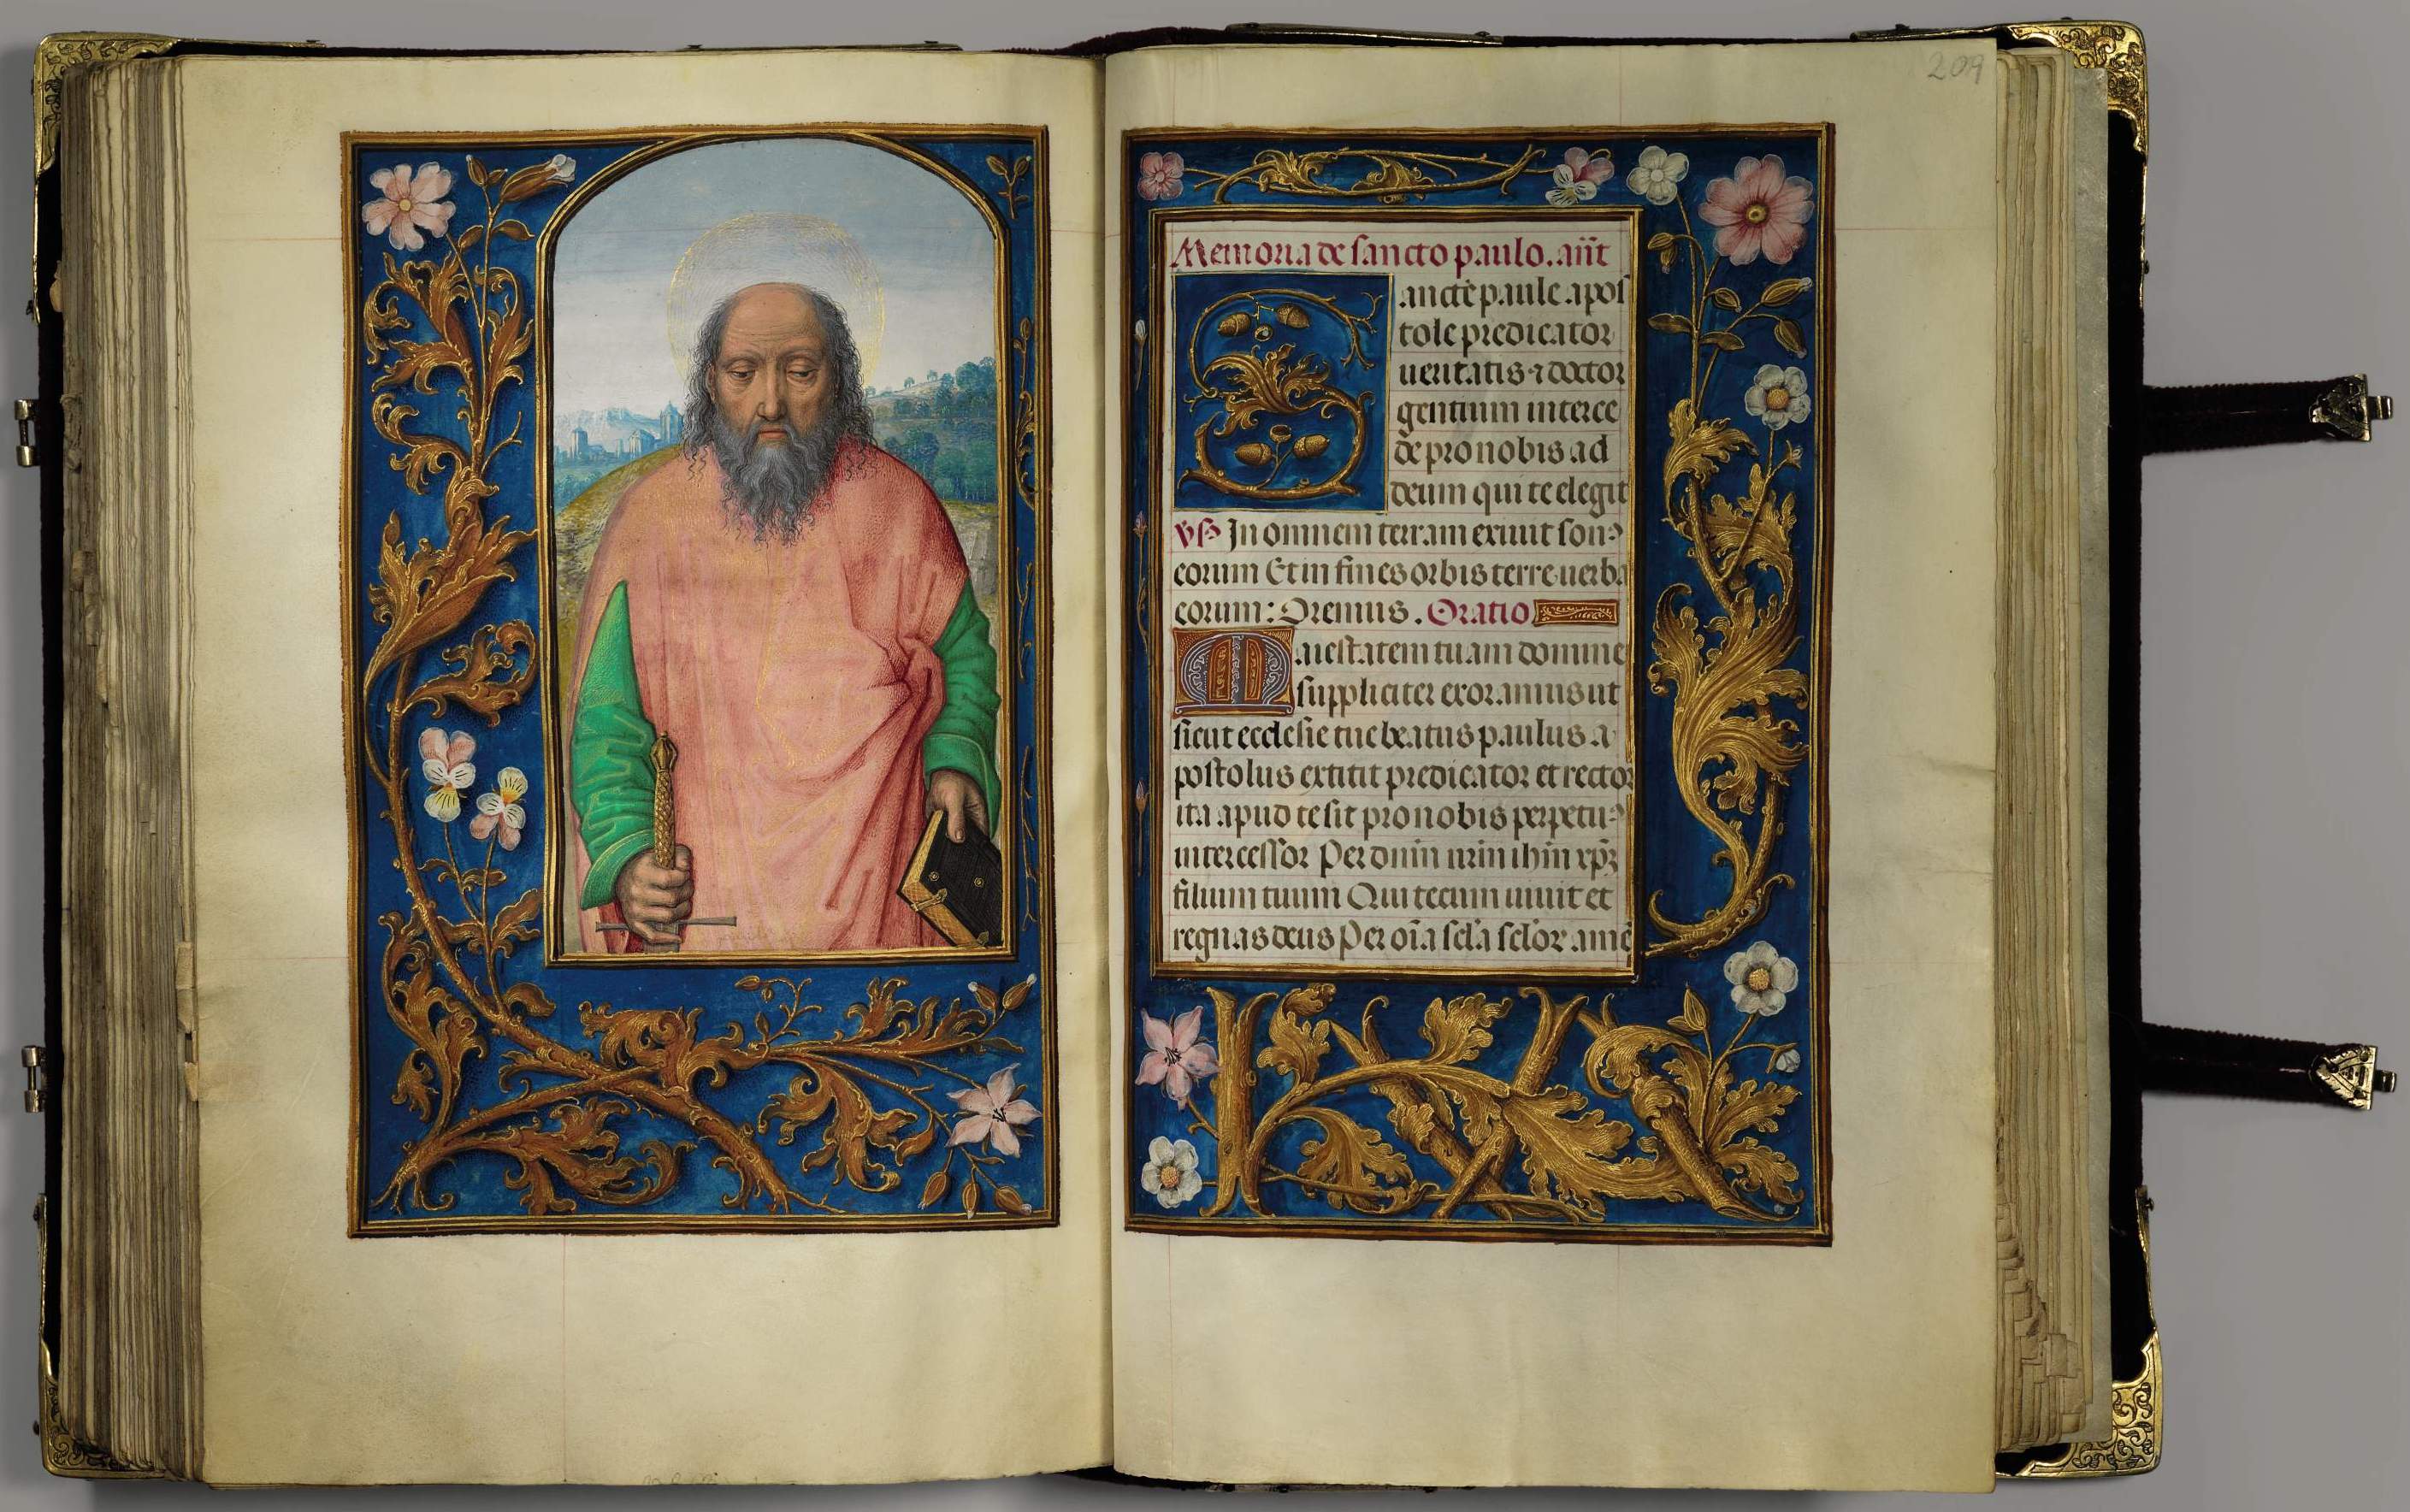 209
Memoria de sancto paulo. añt
Sancte paule apos
tole predicator
ueritatis ⁊ doctor
gentium interce
de pro nobis ad
deum qui te elegit
vs̄ In omnem terram exiuit sonꝰ
eorum Et in fines orbis terre uerba
eorum: Oremus. Oratio
Maiestatem tuam domine
suppliciter exoramus ut
sicut ecclesie tue beatus paulus a
postolus extitit predicator et rector
ita apud te sit pro nobis perpetuꝰ
intercessor Per dñm nr̄m ihm xp̄m
filium tuum Qui tecum uiuit et
regnas deus Per oīa scl̄a scl̄oꝝ amē